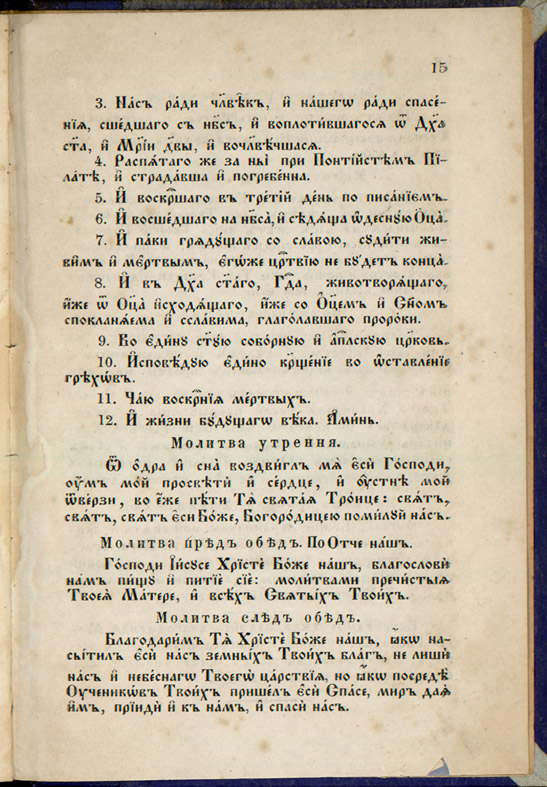 15
3. На́съ ра́ди чл҃вѣ́къ, и҆ на́шегѡ ра́ди спасе́-
нїѧ, сше́дшаго съ нб҃съ, и҆ воплоти́вшагосѧ ѿ Дх҃а
ст҃а, и҆ Мр҃і́и дв҃ы, и҆ вочл҃вѣ́чшасѧ.
4. Распѧ́таго же за ны̀ при Понті́йстѣмъ Пї-
ла́тѣ, и҆ страда́вша и҆ погребе́нна.
5. И҆ воскр҃шаго въ тре́тїй де́нь по писа́нїємъ.
6. И҆ восше́дшаго на нб҃са̀, и҆ сѣдѧ́ща ѡ҆десну́ю Ѻ҆ц҃а̀.
7. И҆ па́ки грѧду́щаго со сла́вою, суди́ти жи-
вы̑мъ и҆ ме́ртвымъ, є҆гѡ́же црⷭ҇твїю не бу́детъ конца̀.
8. И҆ въ Дх҃а ст҃а́го, Гдⷭ҇а, животворѧ́щаго,
и҆́же ѿ Ѻ҆ц҃а̀ и҆сходѧ́щаго, и҆́же со Ѻ҆ц҃емъ и҆ Сн҃омъ
спокланѧ́ема и҆ ссла́вима, глаго́лавшаго проро́ки.
9. Во є҆ди́ну ст҃у́ю собо́рную и҆ а҆пⷭ҇лскую цр҃ковь.
10. И҆сповѣ́дую є҆ди́но кр҃ще́нїе во ѡ҆ставле́нїе
грѣхѡ́въ.
11. Ча́ю воскр҃нїѧ ме́ртвыхъ.
12. И҆ жи́зни бу́дущагѡ вѣ́ка. А҆ми́нь.
Молитва утреннѧ.
Ѿ ѻ҆дра̀ и҆ сна̀ воздви́глъ мѧ̀ є҆сѝ Го́споди,
ᲂу҆́мъ мо́й просвѣтѝ и҆ се́рдце, и҆ ᲂу҆стнѣ̀ мой
ѿве́рзи, во є҆́же пѣ́ти Тѧ̀ свѧта́ѧ Тро́ице: свѧ́тъ,
свѧ́тъ, свѧ́тъ є҆сѝ Бо́же, Богоро́дицею поми́луй на́съ.
Молитва прѣдъ обѣдъ. По Отче на́шъ.
Го́споди І҆и҃су́се Хрїстѐ Бо́же на́шъ, благословѝ
на́мъ пи́щу и҆ питїѐ сїѐ: моли́твами пречи́стыѧ
Твоеѧ̀ Ма́тере, и҆ всѣ́хъ Свѧты́хъ Твои́хъ.
Молитва слѣдъ обѣдъ.
Благодари́мъ Тѧ̀ Хрїстѐ Бо́же на́шъ, ꙗ҆́кѡ на-
сы́тилъ є҆сѝ на́съ земны́хъ Твои́хъ бла́гъ, не лишѝ
на́съ и҆ небе́снагѡ Твоегѡ̀ ца́рствїѧ, но ꙗ҆́кѡ посредѣ̀
Ѹ҆ченикѡ́въ Твои́хъ пришéлъ є҆сѝ Спа́се, миръ даѧ̀
и҆̀мъ, прїидѝ и҆ къ на́мъ, и҆ спасѝ на́съ.